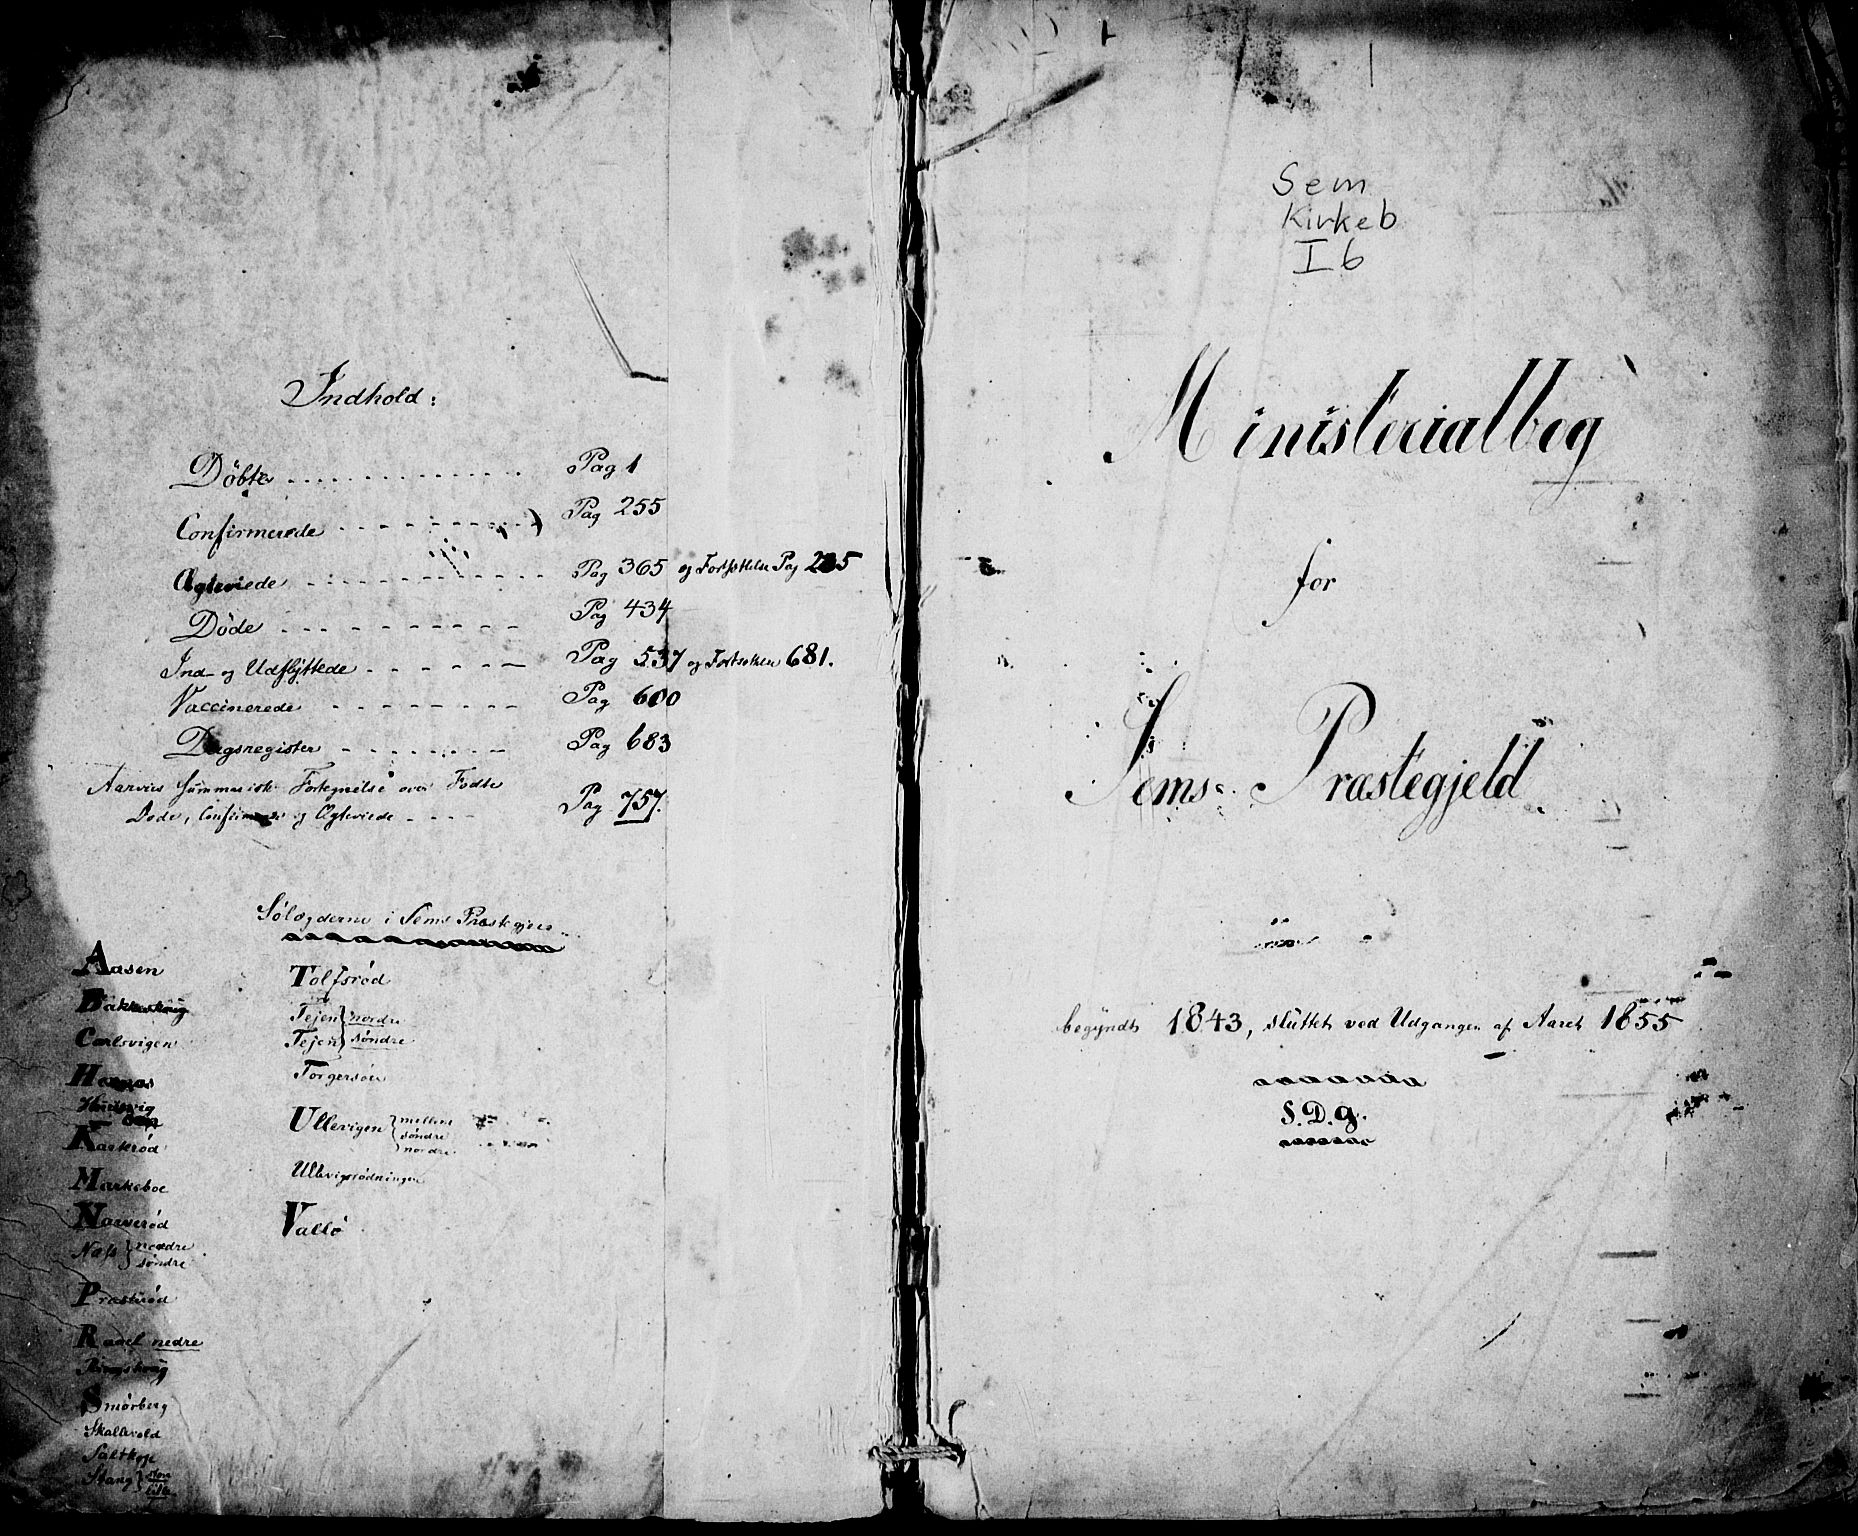 Indhold:
Döbte Pag 1
Confirmerede Pag 255
Ægteviede Pag 365 og Fortsættelse Pag
Döde Pag 434
Ind- og Udflÿttede Pag 537 og Fortsættelse 681.
Vaccinerede Pag 600
Dagsregister Pag 683
Aarvies Summariske Fortegnelse over Födte
Döde, Confirmerede og Ægteviede Pag 757.
Sölægderne i Sems Præstegjeld
Aasen
Bakkeskoug
Carlsvigen
Hernæs
Husvig
Karkrød
Markeboe
Narverød
Næss } nordre
søndre
Præsterød
Raael nedre
Ringskoug
Smörberg
Skallevold
Saltkop
Stang } store
lille
Tolfsrød
Tejen } nordre
Tejen } söndre
Torgersöen
Ullevigen { mellem
söndre
nordre
Ullevigsrödningen
Vallö
Sem
Kirkeb
I 6
Ministerialbog
for
Sems Præstegjeld.
begÿndt 1843, slüttet ved Udgangen af Aaret 1855
S. D. G.